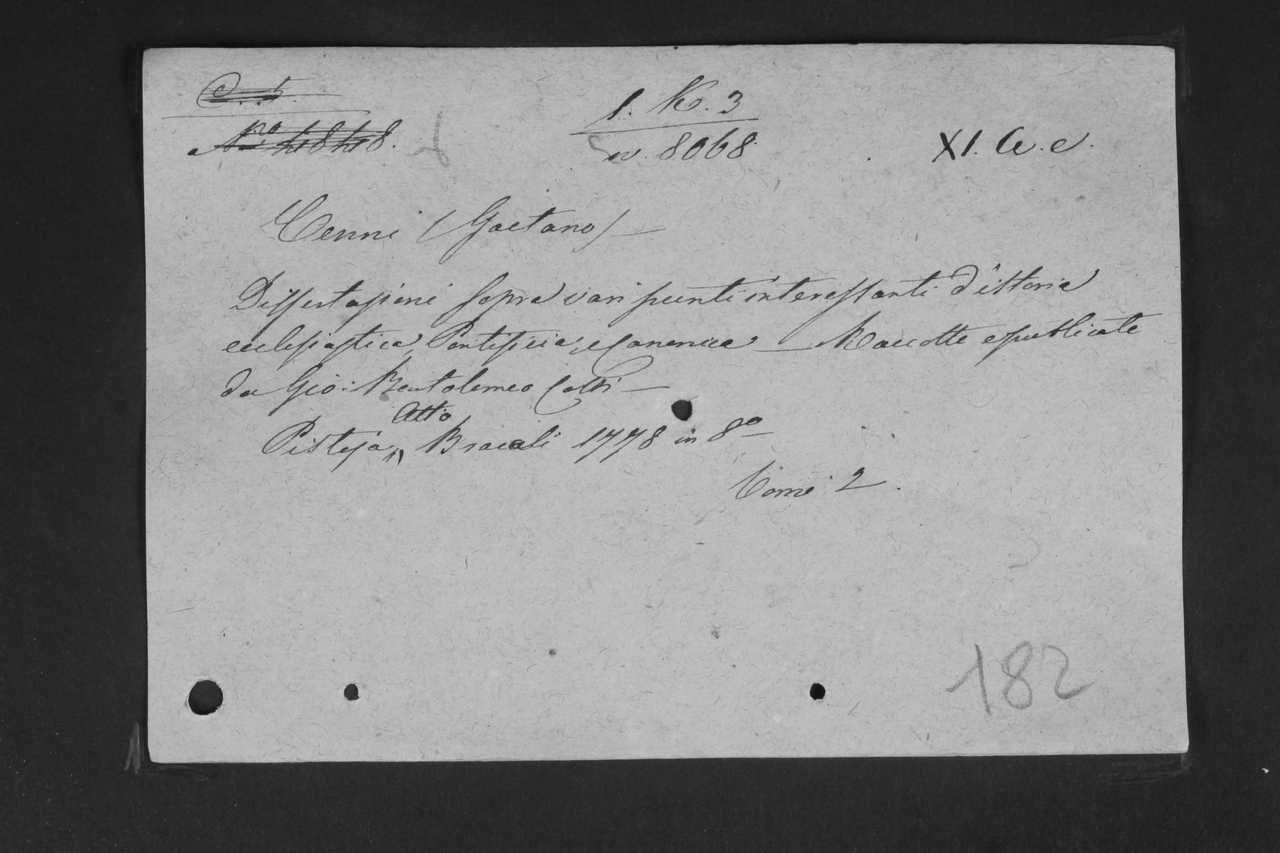 C. 5.
No. 4848.
1. K. 3
n. 8068
XI. A. e.
Cenni (Gaetano)
Dissertazioni sopra vari punti interessanti d'istoria
ecclesiastica, Pontificia, e Canonica — Raccolte e publicate
da Gio: Bartolomeo Colti
Atto
Pistoja, Bracali 1778 in 8o
Tomi 2.
182